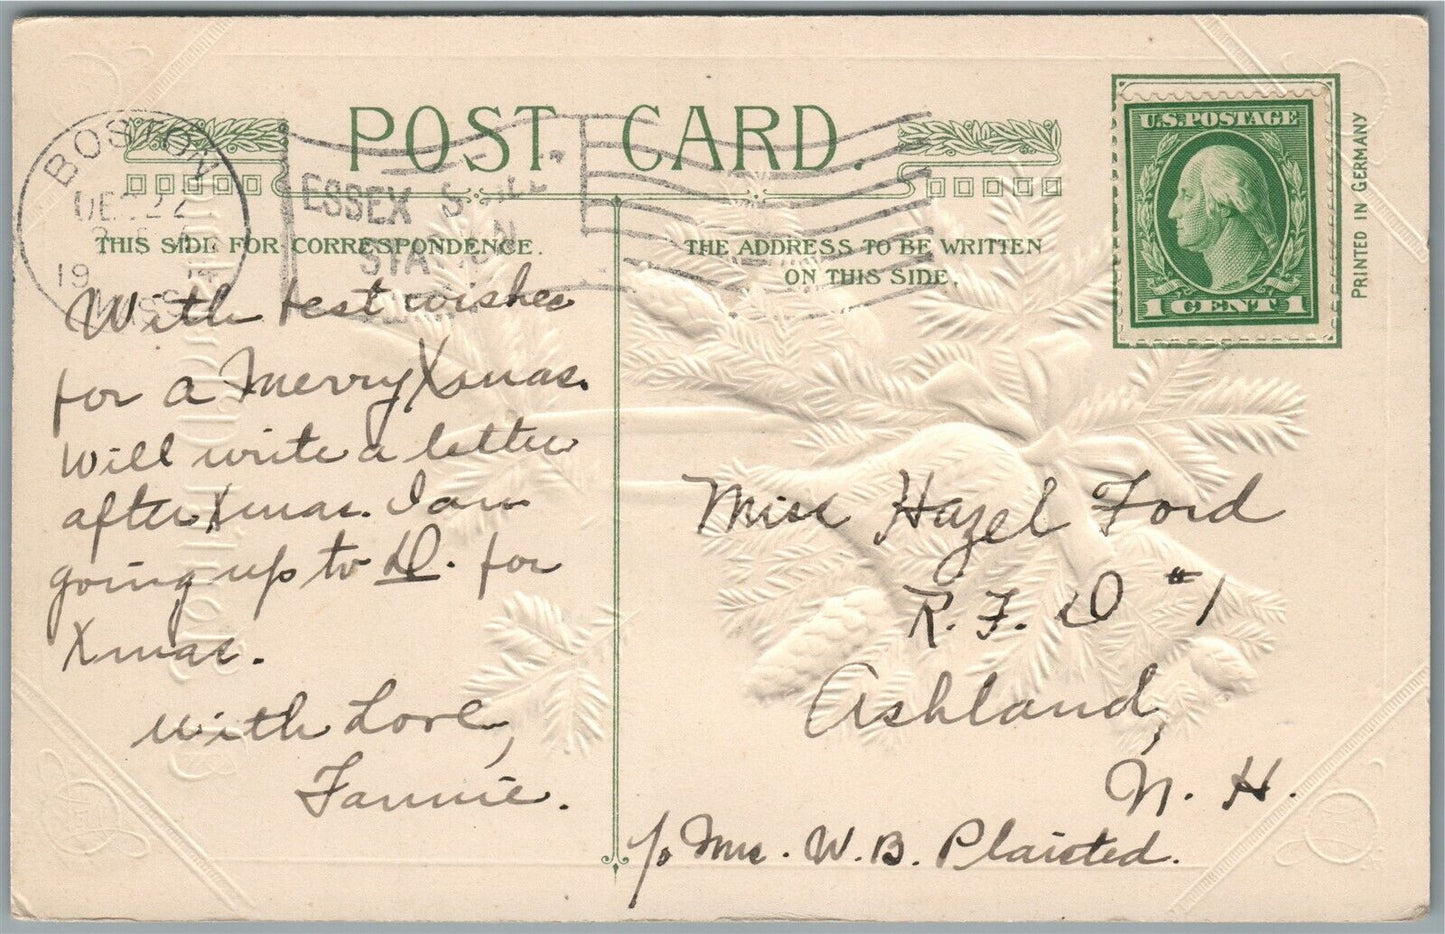 POST CARD.
U.S. POSTAGE
1 CENT 1
PRINTED IN GERMANY
BOSTON
DEC 22
19
MASS
ESSEX
STATION
THIS SIDE FOR CORRESPONDENCE.
THE ADDRESS TO BE WRITTEN
ON THIS SIDE.
With best wishes
for a Merry Xmas.
Will write a letter
after Xmas. I am
going up to D. for
Xmas.
With Love,
Fannie.
Miss Hazel Ford
R. F. D #1
Ashland,
N. H.
c/o Mrs. W. B. Plaisted.